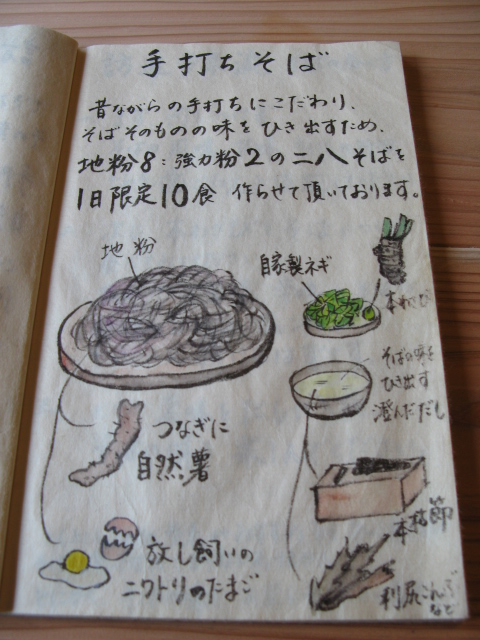 手打ちそば
昔ながらの手打ちにこだわり、
そばそのものの味をひき出すため、
地粉8：強力粉2の二八そばを
1日限定10食 作らせて頂いております。
地粉
自家製ネギ
本わさび
そばの味を
ひき出す
澄んだだし
つなぎに
自然薯
本枯節
放し飼いの
ニワトリのたまご
利尻こんぶ
など